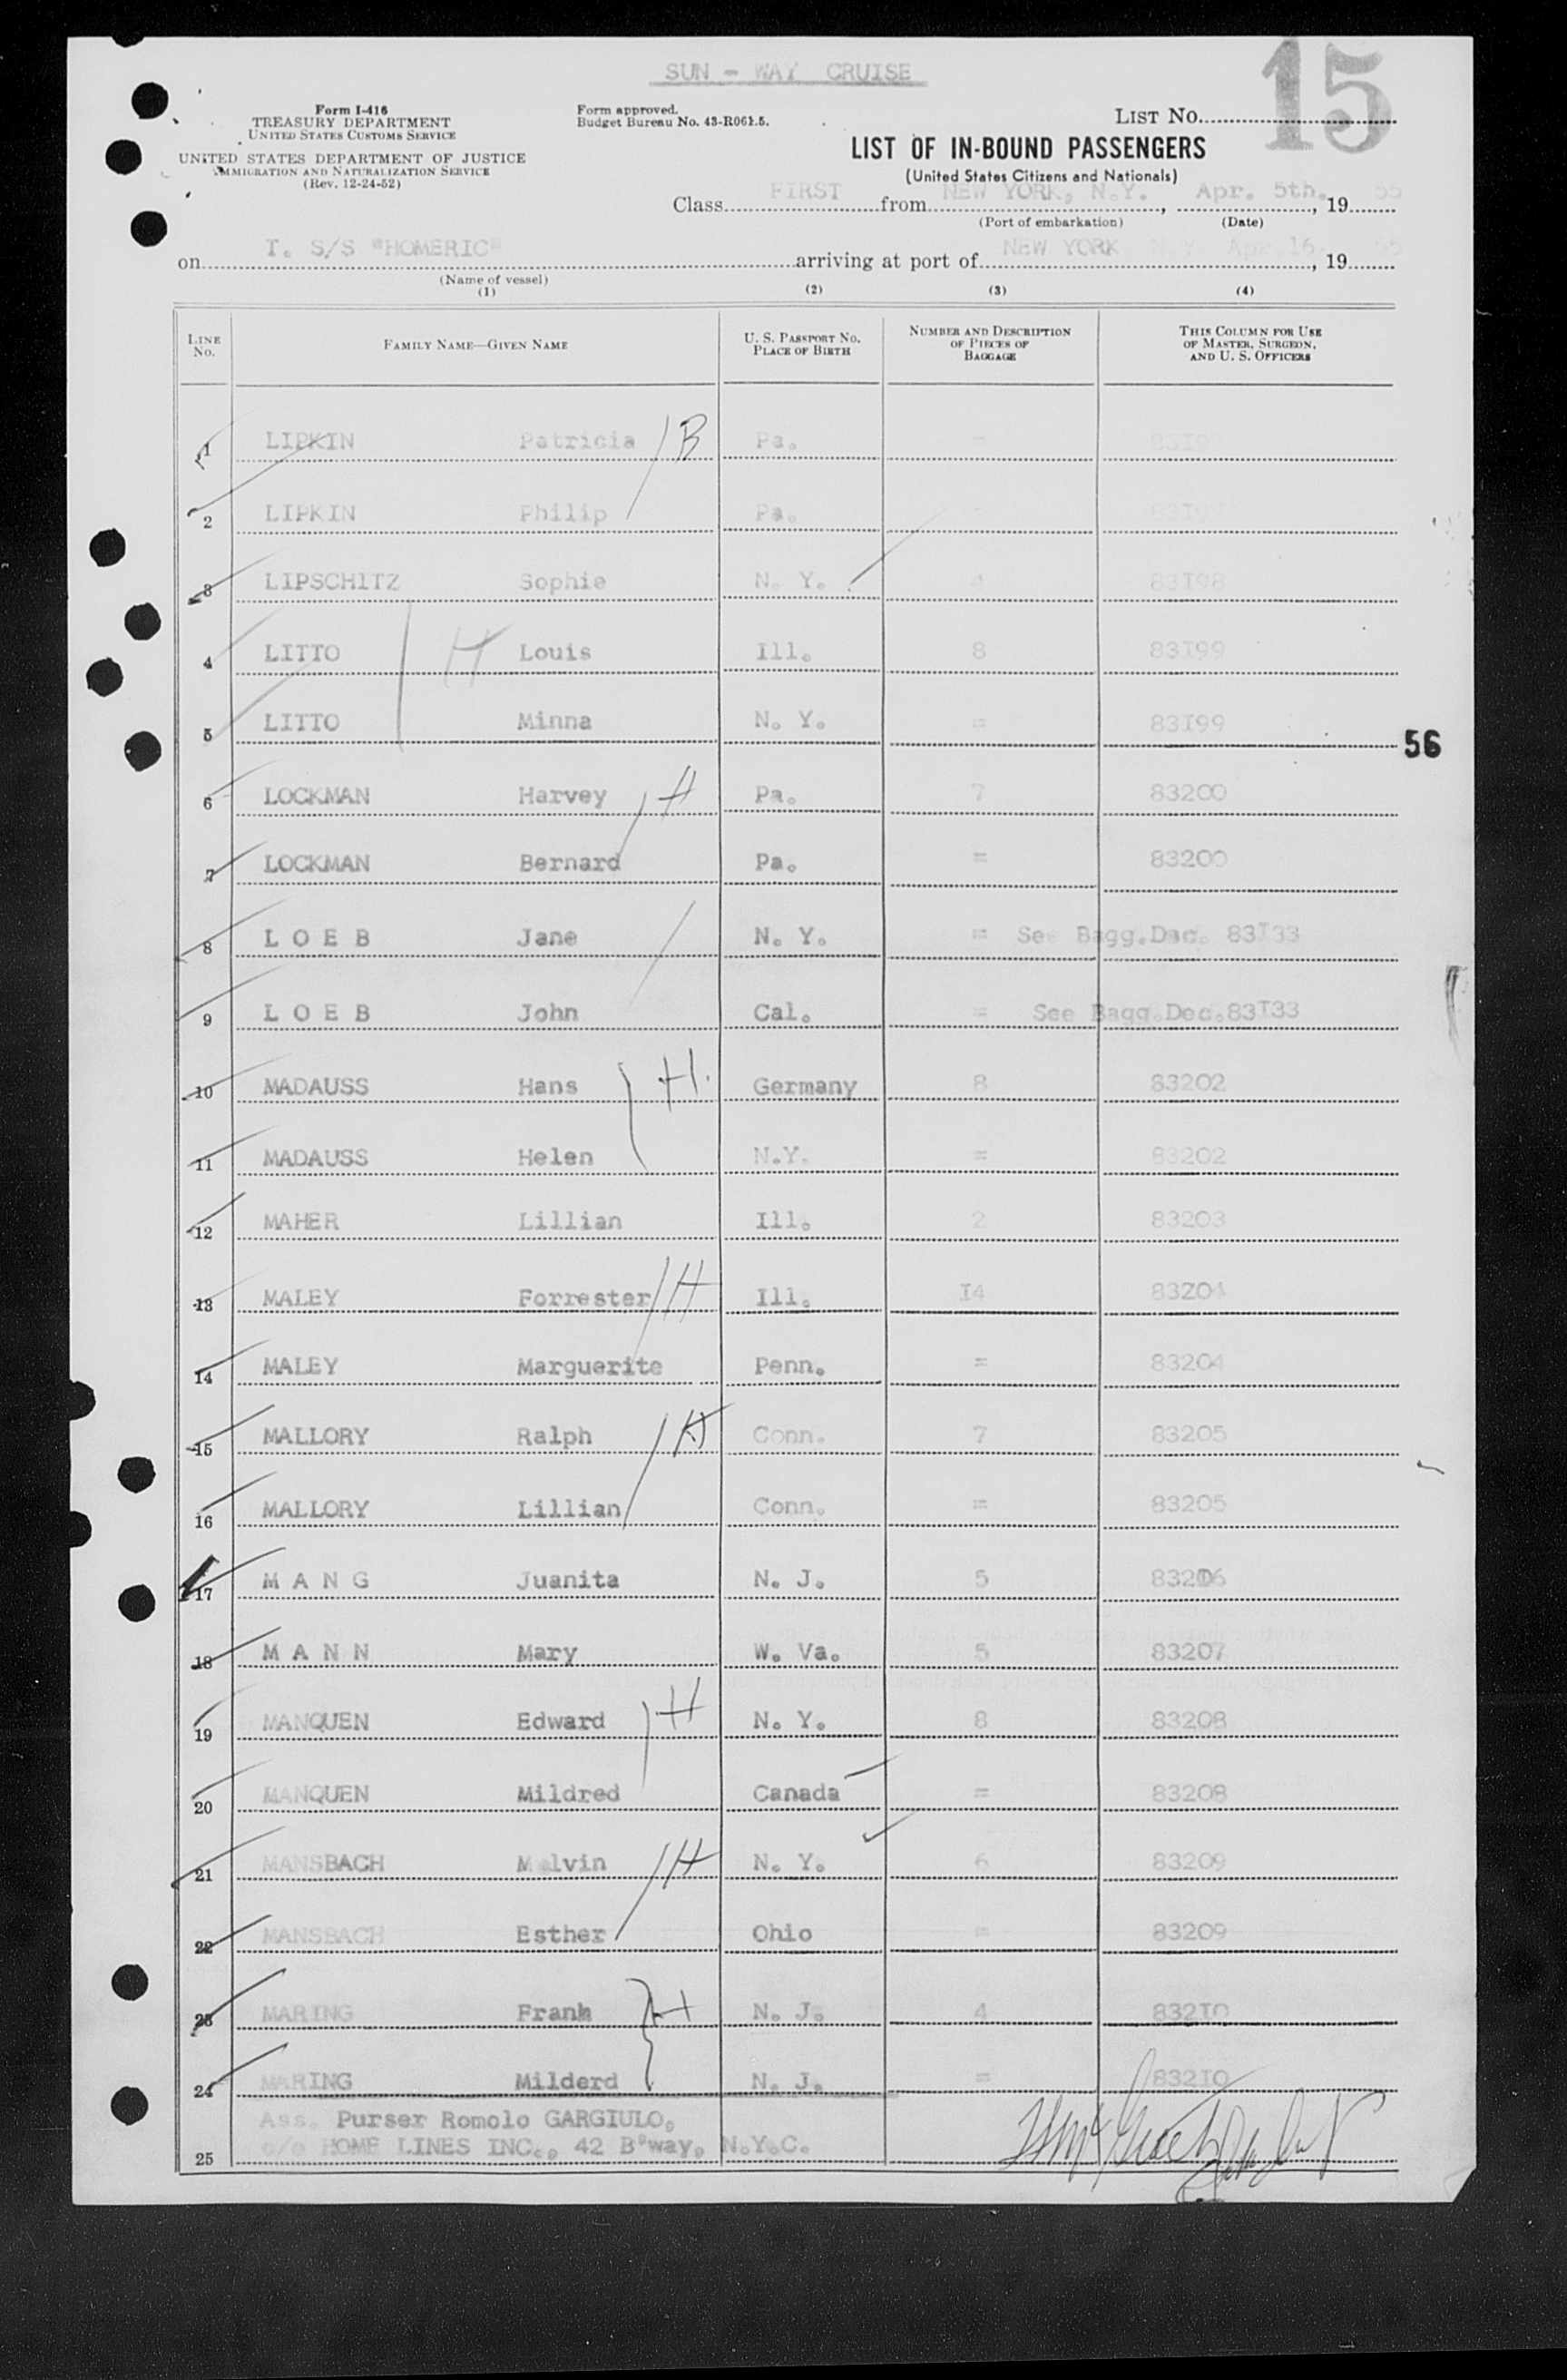 SUN - WAY CRUISE
15
Form I-416
TREASURY DEPARTMENT
UNITED STATES CUSTOMS SERVICE
UNITED STATES DEPARTMENT OF JUSTICE
IMMIGRATION AND NATURALIZATION SERVICE
(Rev. 12-24-52)
Form approved.
Budget Bureau No. 43-R061.5.
LIST NO.
LIST OF IN-BOUND PASSENGERS
(United States Citizens and Nationals)
Class FIRST from NEW YORK, N.Y. , Apr. 5th. , 19 55
(Port of embarkation) (Date)
on T. S/S "HOMERIC" arriving at port of NEW YORK N.Y. Apr.16 , 19 55
(Name of vessel)
(1) (2) (3) (4)
LINE No. FAMILY NAME—GIVEN NAME U. S. PASSPORT NO. PLACE OF BIRTH NUMBER AND DESCRIPTION OF PIECES OF BAGGAGE THIS COLUMN FOR USE OF MASTER, SURGEON, AND U. S. OFFICERS
1 LIPKIN Patricia B Pa. =
2 LIPKIN Philip Pa.
3 LIPSCHITZ Sophie N. Y. 4 83I98
4 LITTO H Louis Ill. 8 83I99
5 LITTO Minna N. Y. = 83I99
56
6 LOCKMAN Harvey H Pa. 7 83200
7 LOCKMAN Bernard Pa. = 83200
8 L O E B Jane N. Y. = See Bagg.Dec. 83I33
9 L O E B John Cal. = See Bagg.Dec.83I33
10 MADAUSS Hans H. Germany 8 83202
11 MADAUSS Helen N.Y. = 83202
12 MAHER Lillian Ill. 2 83203
13 MALEY Forrester H Ill. I4 83204
14 MALEY Marguerite Penn. = 83204
15 MALLORY Ralph H Conn. 7 83205
16 MALLORY Lillian Conn. = 83205
17 M A N G Juanita N. J. 5 83206
18 M A N N Mary W. Va. 5 83207
19 MANQUEN Edward H N. Y. 8 83208
20 MANQUEN Mildred Canada = 83208
21 MANSBACH Melvin H N. Y. 6 83209
22 MANSBACH Esther Ohio = 83209
23 MARING Frank H N. J. 4 832I0
24 MARING Milderd N. J. = 832I0
Ass. Purser Romolo GARGIULO,
25 c/o HOME LINES INC., 42 B'way, N.Y.C.